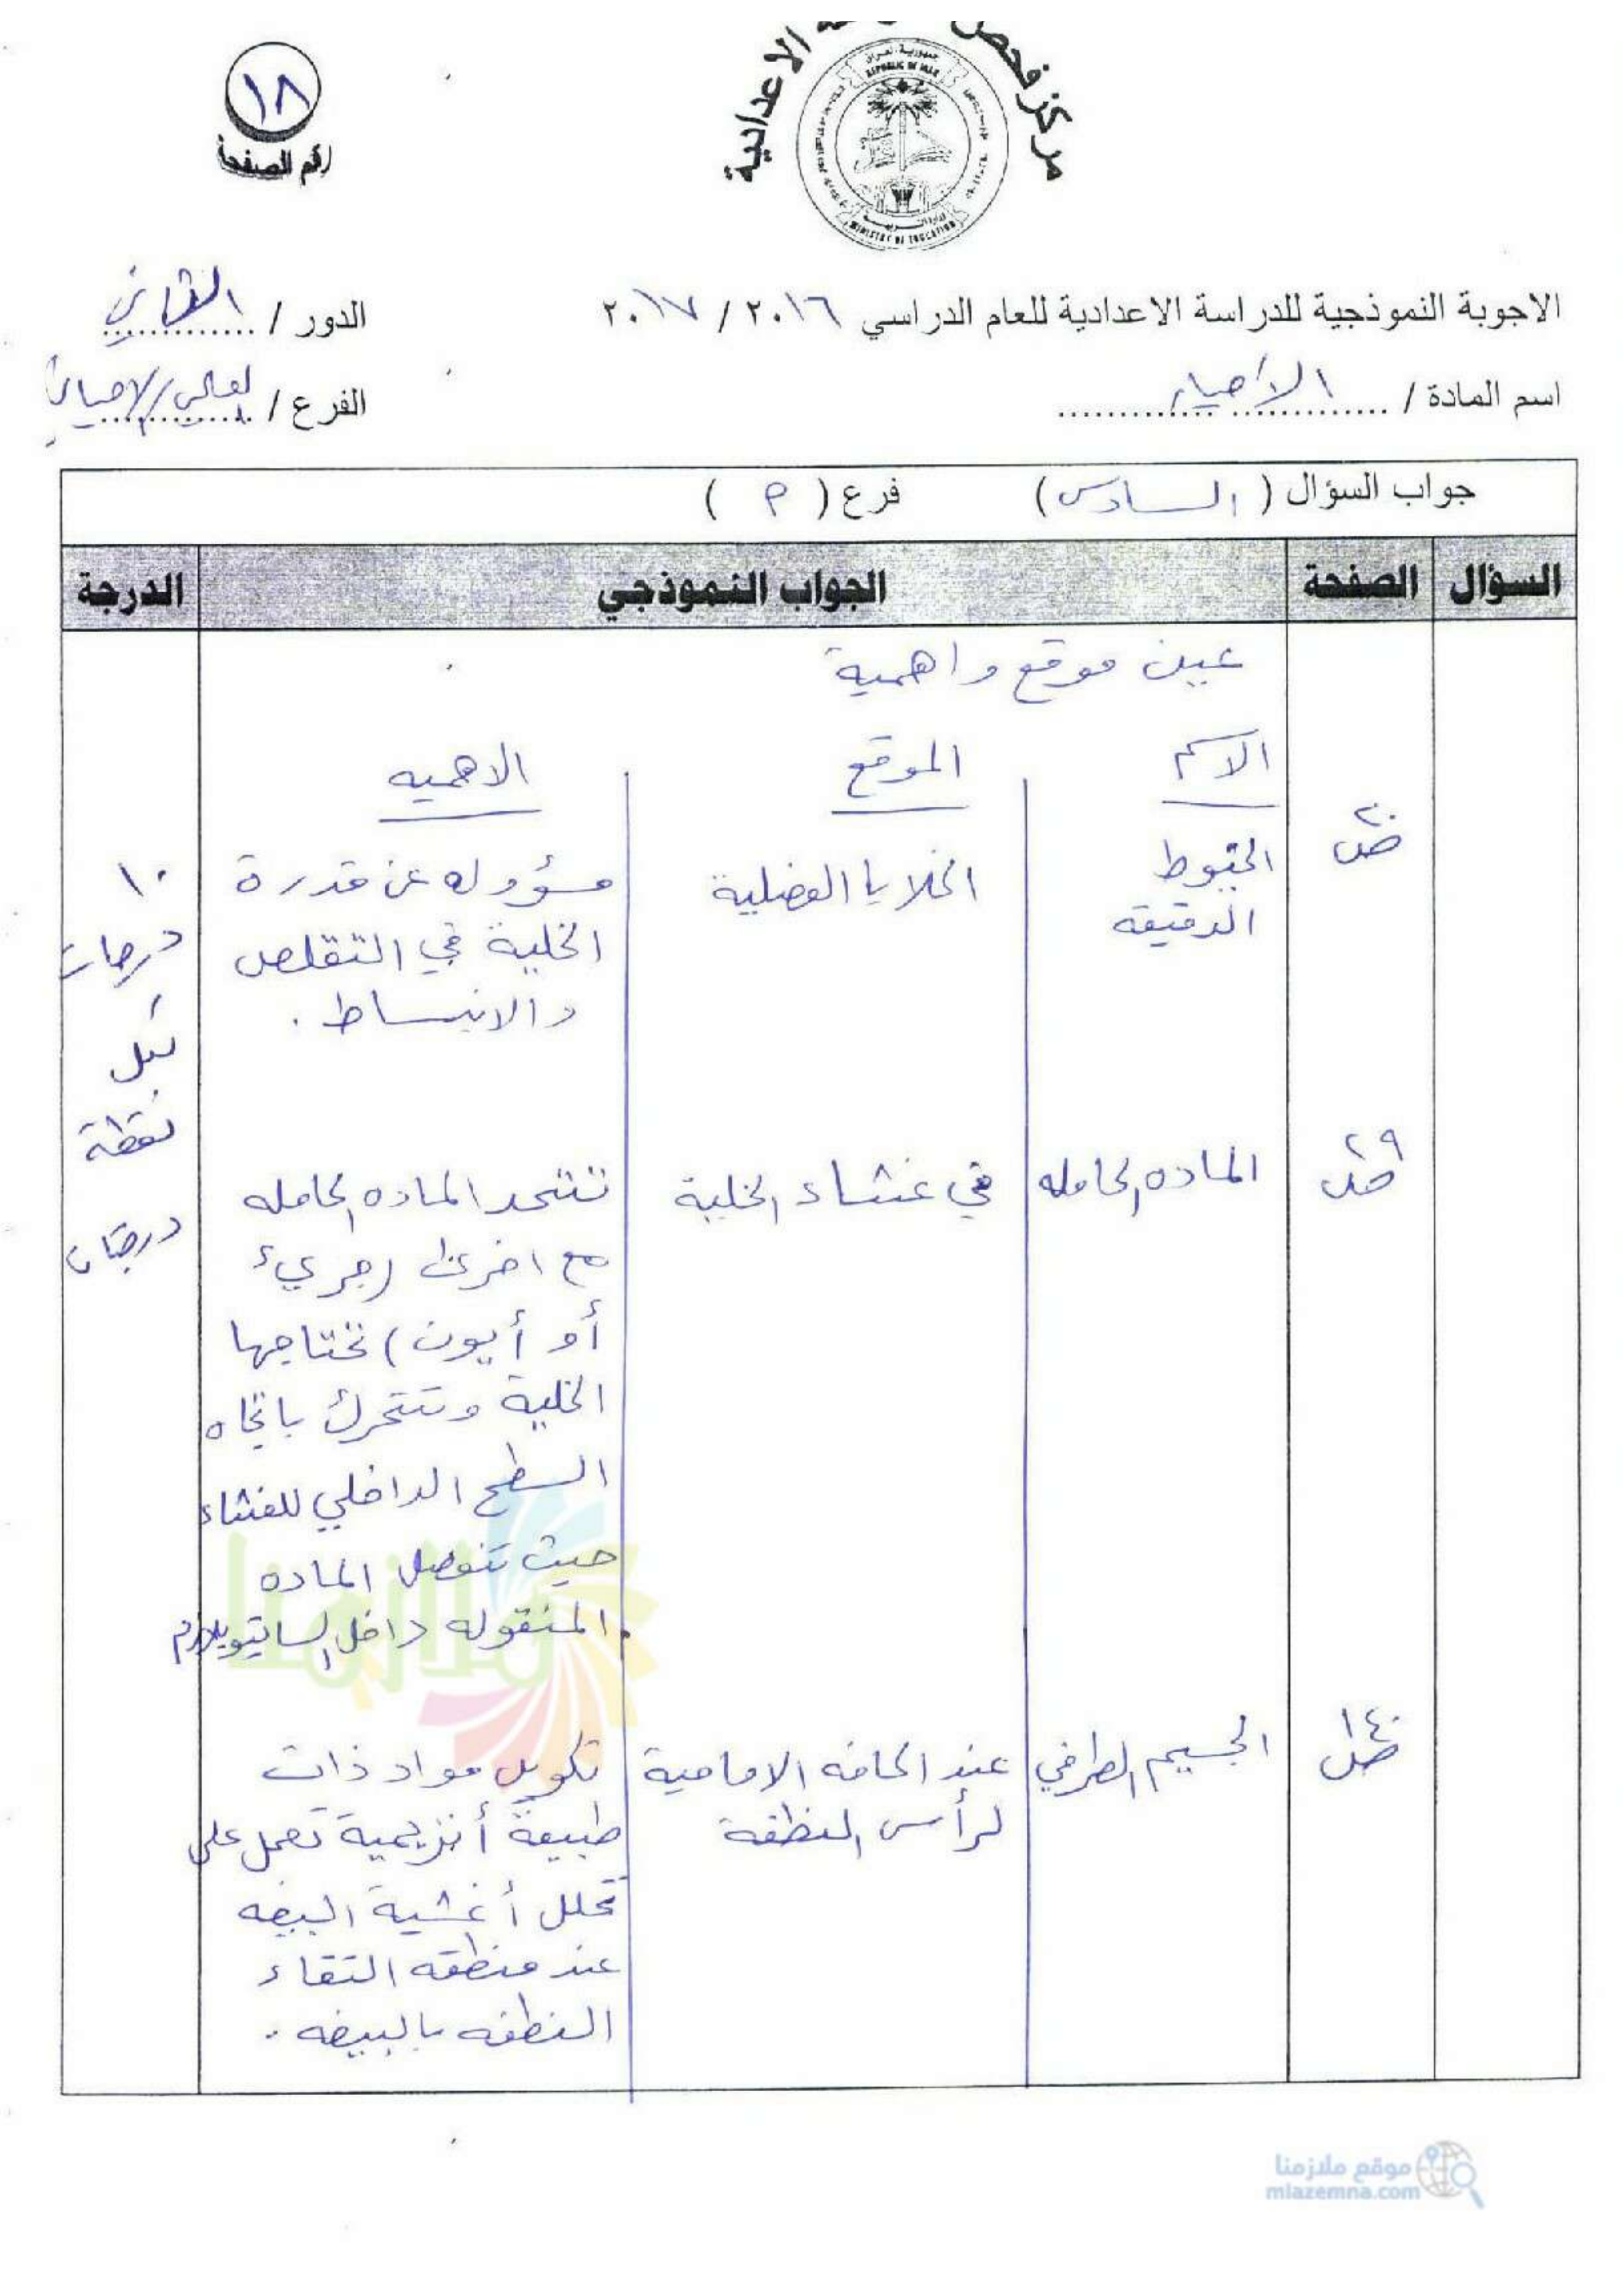 مركز فحص
الاعدادية
جمهورية العراق
REPUBLIC OF IRAQ
وزارة التربية
MINISTRY OF EDUCATION
١٨
رقم الصفحة
الاجوبة النموذجية للدراسة الاعدادية للعام الدراسي ٢٠١٦ / ٢٠١٧
الدور / الثاني
اسم المادة / الأحياء
الفرع / العلمي/الاحيائي
جواب السؤال ( السادس ) فرع ( م )
السؤال الصفحة الجواب النموذجي الدرجة
عين موقع واهمية
الاسم الموقع الاهميه
ص٢٠
الخيوط
الدقيقه
الخلايا العضلية
مسؤوله عن قدرة
الخلية في التقلص
والانبساط .
١٠
درجات
لكل
نقطة
درجتان
ص٢٩
الماده الحامله
في غشاء الخلية
تتحد الماده الحامله
مع اخرى (جزيء
أو أيون) تحتاجها
الخلية وتتحرك باتجاه
السطح الداخلي للغشاء
حيث تنفصل الماده
المنقوله داخل السايتوبلازم
ص١٤٠
الجسيم الطرفي
عند الحافه الامامية
لرأس النطفة
تكوين مواد ذات
طبيعة أنزيمية تعمل على
تحلل أغشية البيضه
عند منطقه التقاء
النطفه بالبيضه .
ملازمنا
موقع ملازمنا
mlazemna.com